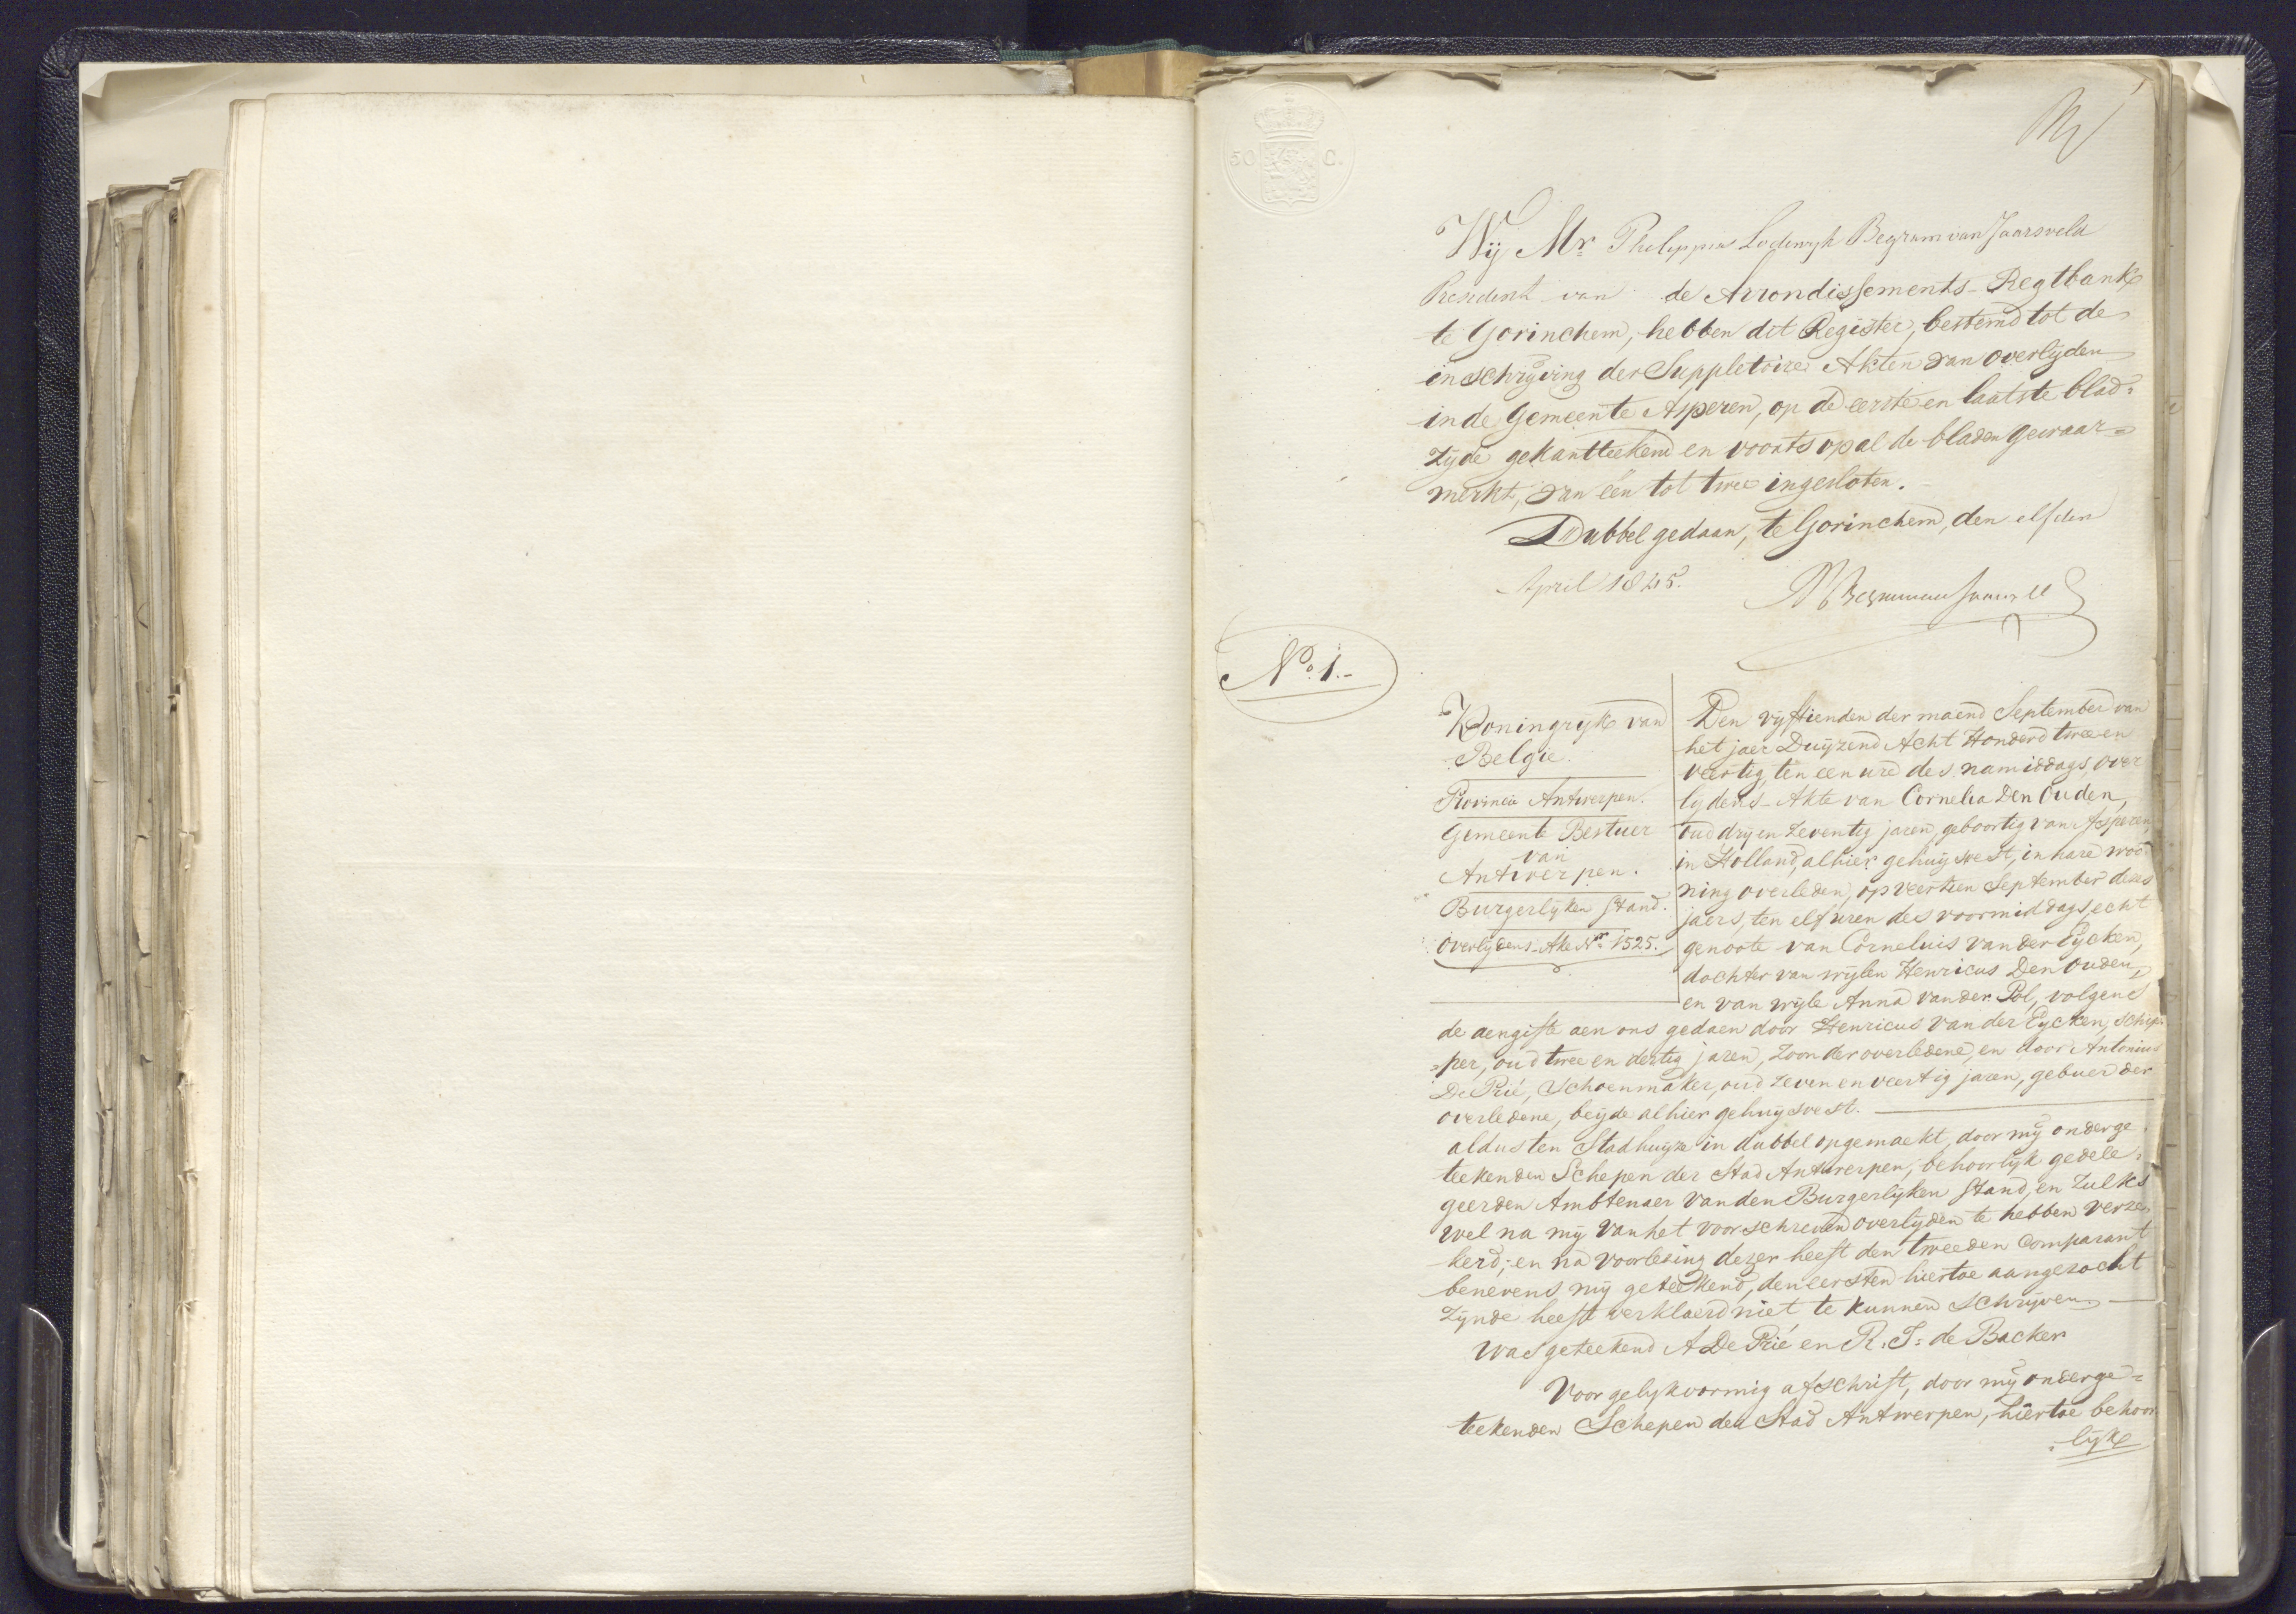 50 C.
Wij Mr. Philippus Lodewyk Begram van Jaarsveld
President van de Arrondissements-Regtbank
te Gorinchem, hebben dit Register, bestemd tot de
inschrijving der Suppletoire Akten van overlijden
in de Gemeente Asperen, op de eerste en laatste blad=
zijde gekantteekend en voorts op al de bladen gewaar=
merkt, van een tot twee ingesloten.
Dubbel gedaan, te Gorinchem, den elfden
April 1845.
No. 1.-
Koningryk van
Belgie.
Provincie Antwerpen.
Gemeente Bestuer
van
Antwerpen.
Burgerlijken Stand.
Overlijdens-Akte Nr. 1525.
Den vijftienden der maend September van
het jaer Duijzend Acht Honderd twee en
veertig, ten een ure des namiddags, over
lydens-Akte van Cornelia Den Ouden,
oud dry en zeventig jaren, geboortig van Asperen,
in Holland, alhier gehuijsvest, in hare woo-
ning overleden, op veertien September dezes
jaers, ten elf uren des voormiddags, echt
genoote van Cornelius van der Eycken,
dochter van wijlen Henricus Den Ouden,
en van wyle Anna van der Pol, volgens
de aengifte aen ons gedaen door Henricus van der Eycken, schip-
=per, oud twee en dertig jaren, zoon der overledene, en door Antonius
De Prié, Schoenmaker, oud zeven en veertig jaren, gebuer der
overledene, beijde alhier gehuijsvest.
aldus ten Stadhuijze in dubbel opgemaekt, door mij onderge
teekenden Schepen der Stad Antwerpen, behoorlijk gedele=
geerden Ambtenaer van den Burgerlijken Stand, en zulks
wel na mij van het voorschreven overlijden te hebben verze-
kerd; en na voorlezing dezer heeft den tweeden Comparant
benevens mij geteekend, den eersten hiertoe aangezocht
zijnde heeft verklaerd niet te kunnen schrijven.
Was geteekend A De Prié en R. J. de Backer
Voor gelykvormig afschrift, door mij onderge=
teekenden Schepen der Stad Antwerpen, hiertoe behoor
=lijk